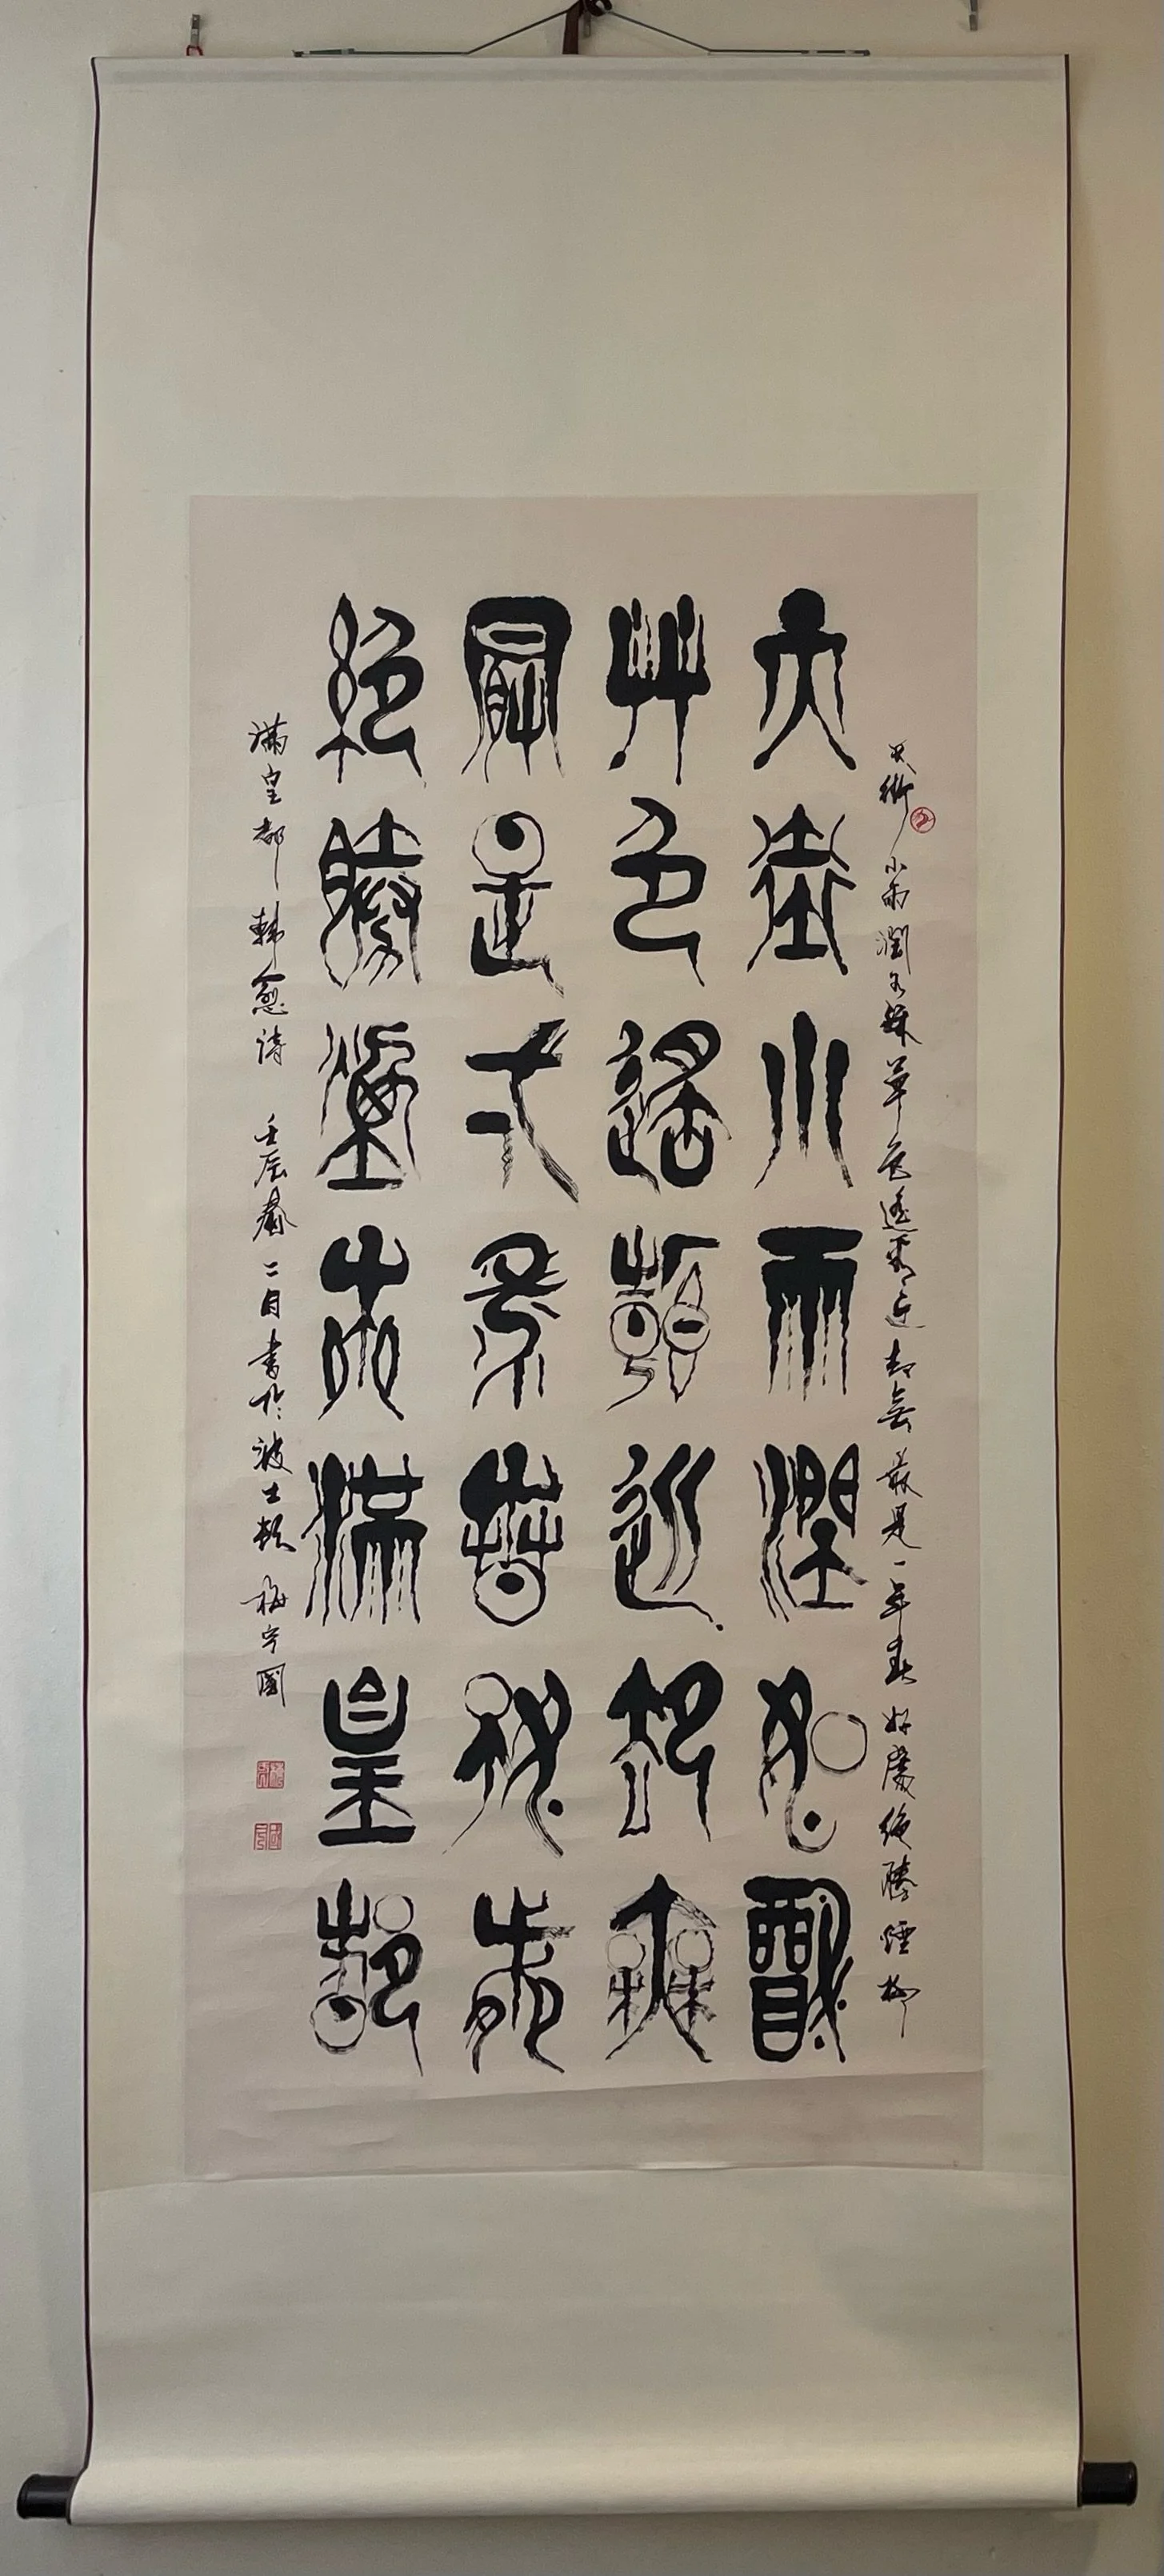 天街小雨潤如酥草色遙看近却無最是一年春好處絕勝煙柳
天街小雨潤如酥
草色遙看近卻無
最是一年春好處
絕勝煙柳滿皇都
滿皇都 韓愈詩 壬辰春二月書於波士頓 梅宇國